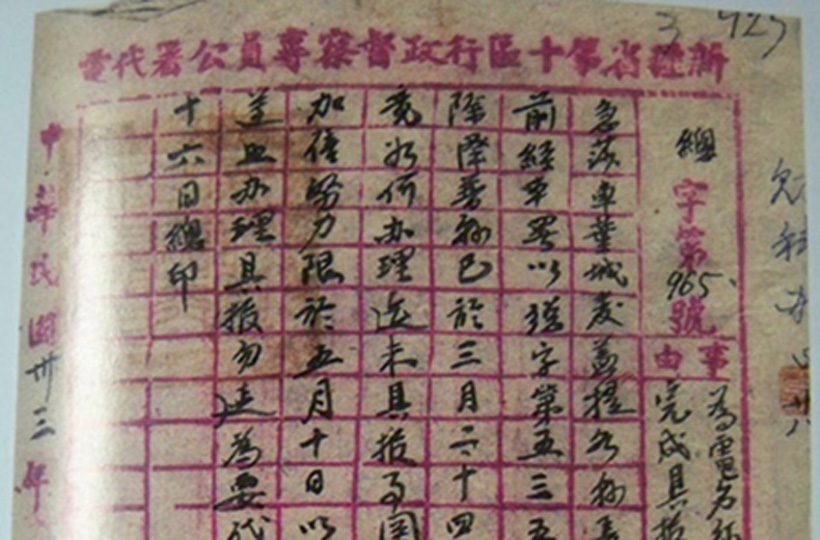 新疆省第十區行政督察專員公署代電
總字第965號
事由
為電各
完成具報
急莎車葉城麥蓋提各縣長
前經本署以總字第五三五
除澤普縣已於三月二十四
竟如何办理迄未具報
加倍努力限於五月十日以
办理具報勿延為要代
十六日總印
中華民國卅三年